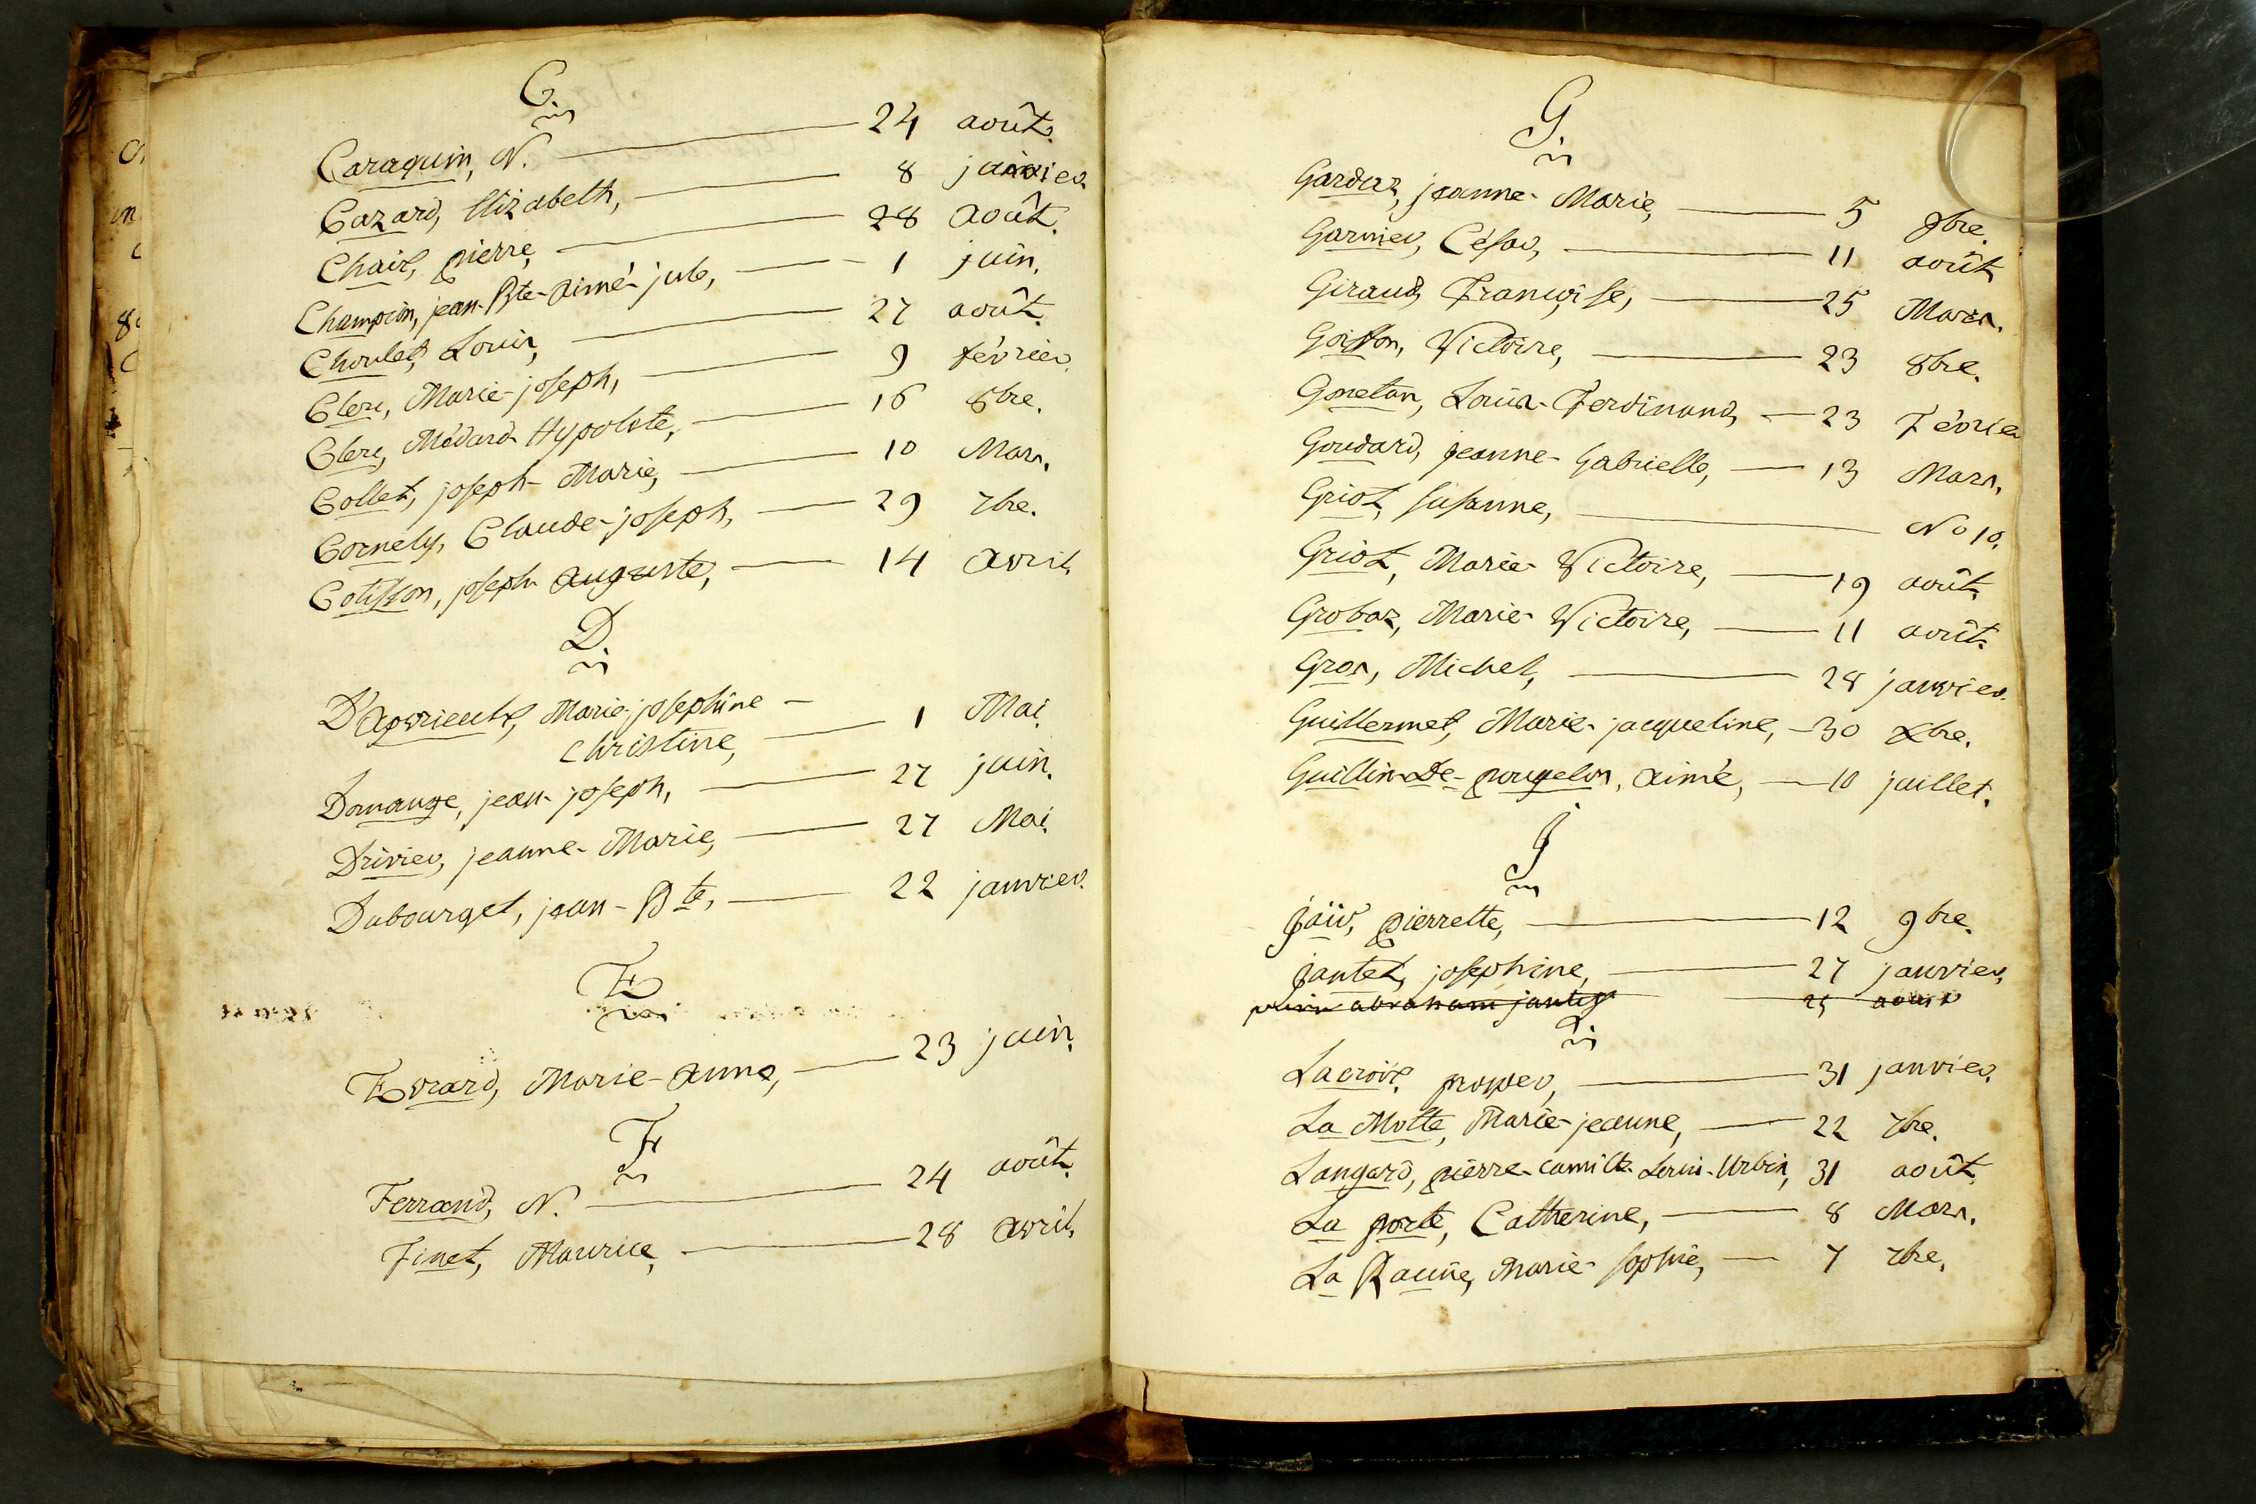 C.
Caraquin, N. 24 août.
Cazard, Elizabeth, 8 janvier
Chaix, pierre, 28 août.
Champion, jean-Bte-aimé-jule, 1 juin.
Choulet, Louis, 27 août.
Clerc, Marie-joseph, 9 février.
Clerc, Médard-Hypolite, 16 8bre.
Collet, joseph-Marie, 10 Mars.
Cornely, Claude-joseph, 29 7bre.
Cotisson, joseph-auguste, 14 avril
D.
D'apvrieulx, Marie-josephine-
Christine, 1 Mai.
Domange, jean-joseph, 27 juin.
Drivier, jeanne-Marie, 27 Mai.
Dubourget, jean-Bte, 22 janvier.
E
Evrard, Marie-anne, 23 juin.
F
Ferrand, N. 24 août.
Finet, Maurice, 28 avril
G.
Gardaz, jeanne-Marie, 5 9bre.
Garnier, César, 11 août
Giraud, Françoise, 25 Mars.
Goisson, Victoire, 23 8bre.
Gonetan, Louis-Ferdinand, 23 Février
Goudard, jeanne-Gabrielle, 13 Mars.
Griot, susanne, No 10.
Griot, Marie-Victoire, 19 août.
Grobaz, Marie-Victoire, 11 août.
Gros, Michel, 28 janvier.
Guillermet, Marie-jacqueline, 30 Xbre.
Guillin-De-pougelon, aimé, 10 juillet.
J
jaïr, pierrette, 12 9bre.
jantet, josephine, 27 janvier,
abraham 25 aout
L
Lacroix, prosper, 31 janvier.
La Motte, Marie-jeanne, 22 7bre.
Langard, pierre-camille-Louis-Urbin, 31 août.
La porte, Catherine, 8 Mars.
La Racine, Marie-sophie, 7 7bre.